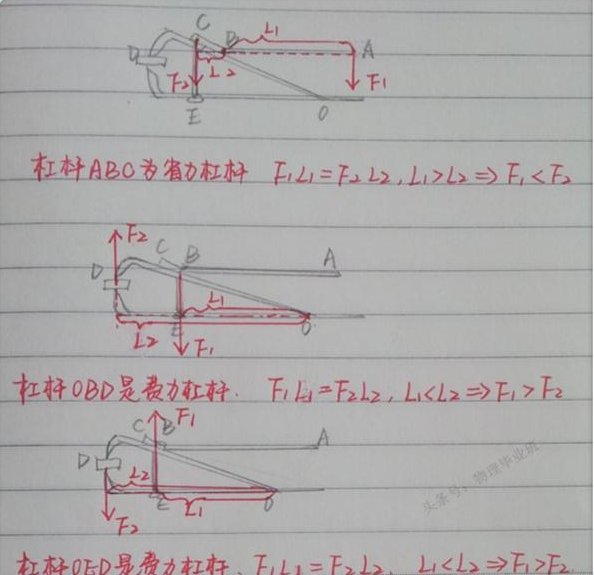 C
B L₁ A
D
F₂ L₂ F₁
E O
杠杆ABC为省力杠杆 F₁L₁=F₂L₂, L₁>L₂⇒F₁<F₂
F₂
C B A
D
L₁
E O
L₂ F₁
杠杆OBD是费力杠杆. F₁L₁=F₂L₂, L₁<L₂⇒F₁>F₂
F₁
C B A
D
L₂
E O
L₁
F₂
头条号:物理毕业班
杠杆OED是费力杠杆. F₁L₁=F₂L₂, L₁<L₂⇒F₁>F₂